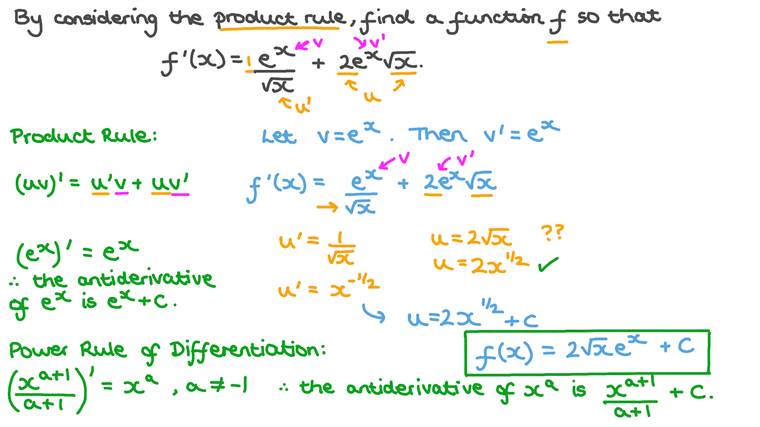 By considering the product rule, find a function f so that
f'(x) = 1e^x/√x + 2e^x√x.
v v'
u' u
Product Rule:
Let v=e^x. Then v'=e^x
(uv)' = u'v + uv'
f'(x) = e^x/√x + 2e^x√x
v v'
(e^x)' = e^x
∴ the antiderivative
of e^x is e^x+C.
u' = 1/√x
u = 2√x ??
u = 2x^1/2 ✓
u' = x^-1/2
↳ u=2x^1/2 + C
Power Rule of Differentiation:
f(x) = 2√x e^x + C
(x^a+1/a+1)' = x^a, a≠-1 ∴ the antiderivative of x^a is x^a+1/a+1 + C.